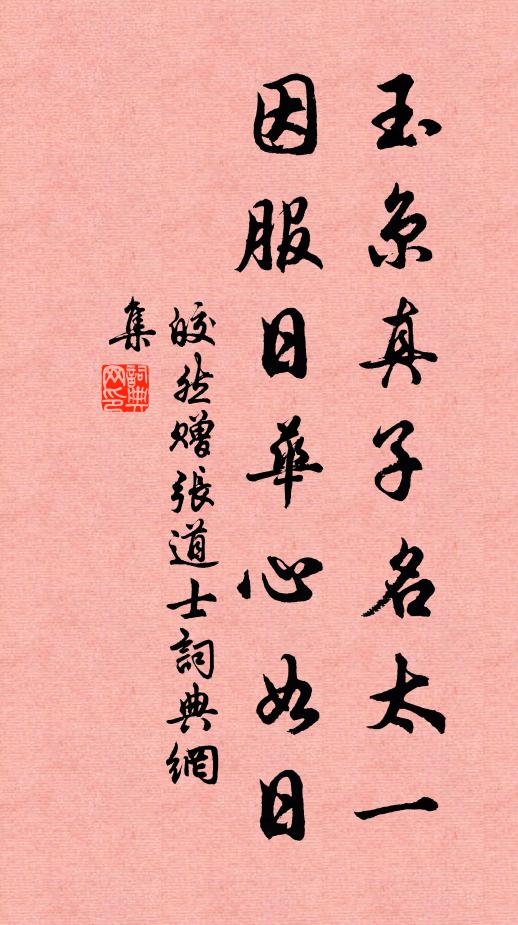 玉京真子名太一
因服日華心如日
皎然贈張道士詞典網
集
詞典
网印